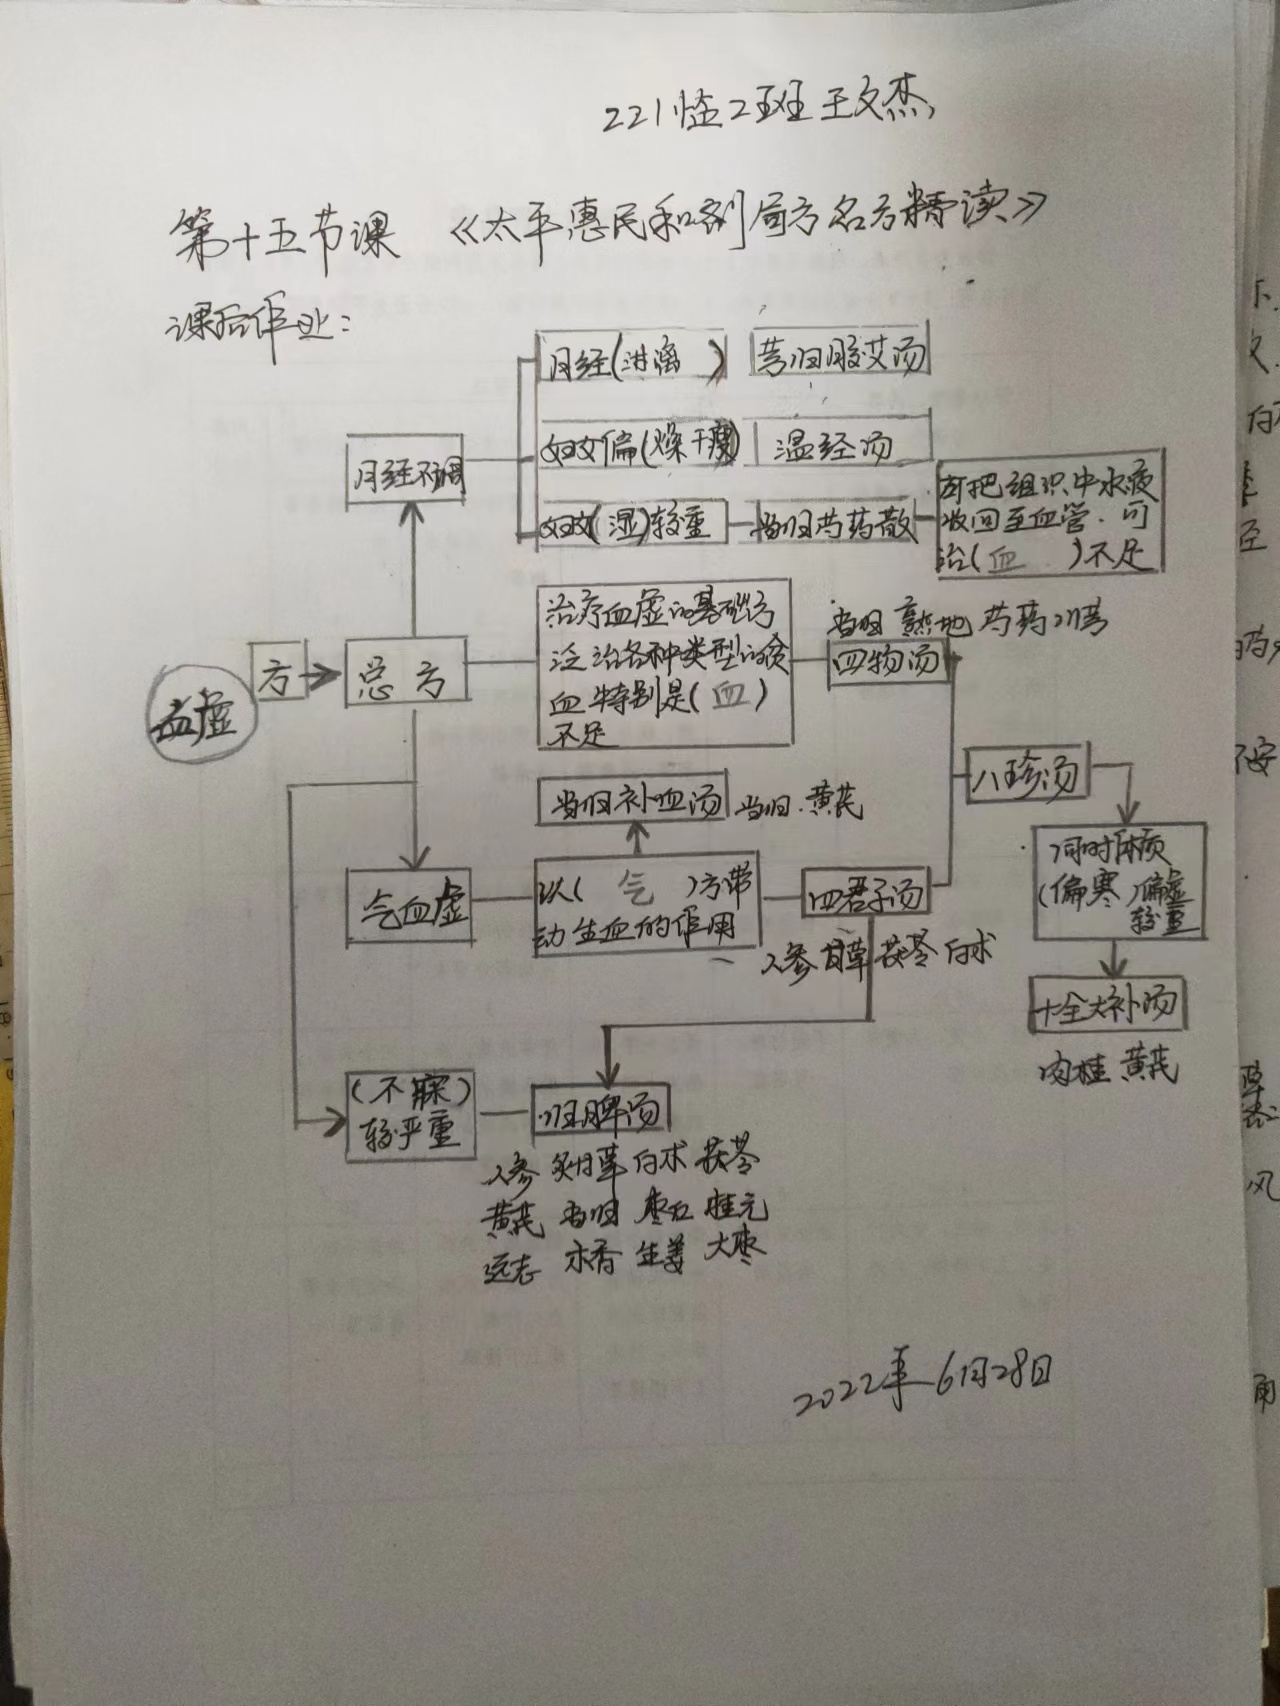 221怪2班 王文杰
第十五节课 《太平惠民和剂局方名方精读》
课后作业:
月经(淋漓 ) 芎归胶艾汤
妇女偏(燥干瘦) 温经汤
月经不调
妇女(湿)较重 当归芍药散
可把组织中水液
收回至血管.可
治(血 )不足
血虚 方 总方
治疗血虚的基础方
泛治各种类型的贫
血特别是(血)
不足
当归 熟地 芍药 川芎
四物汤
八珍汤
当归补血汤 当归.黄芪
同时体质
(偏寒)偏虚
较重
气血虚
以( 气 )方带
动生血的作用
四君子汤
人参 甘草 茯苓 白术
十全大补汤
肉桂 黄芪
(不寐)
较严重
归脾汤
人参 炙甘草 白术 茯苓
黄芪 当归 枣仁 桂元
远志 木香 生姜 大枣
2022年6月28日